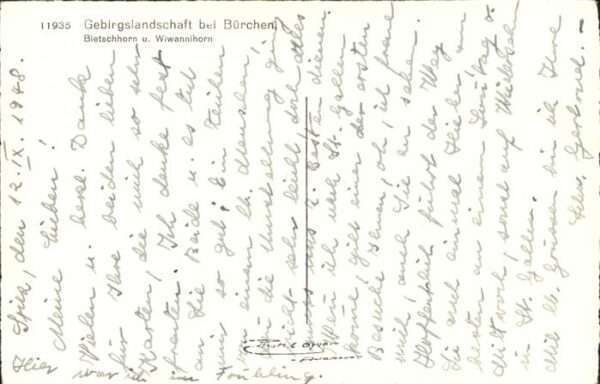 11935 Gebirgslandschaft bei Bürchen,
Bietschhorn u. Wiwannihorn
den 12. IX. 1948.
Meine Lieben!
Vielen u. herz. Dank
für Ihre beiden lieben
Karten, die mich so sehr
freuten! Ich denke fest
an Sie Beide u. es tut
mir so gut! Ein
einem lb. Menschen,
die Umstellung ging
nicht sehr leicht, doch alles
uns z. Besten dienen.
Wenn ich nach St. Gallen
komme, gilt einer der ersten
Besuche Ihnen, oh, ich freue
mich, auch Sie zu sehen.
Hoffentlich führt der Weg
Sie auch einmal hieher, am
besten an einem Sonntag o.
Mittwoch, sonst auf Wiedersehen
in St. Gallen.
Mit lb. Grüssen bin ich Ihre
Gertrud.
Hier war ich im Frühling.